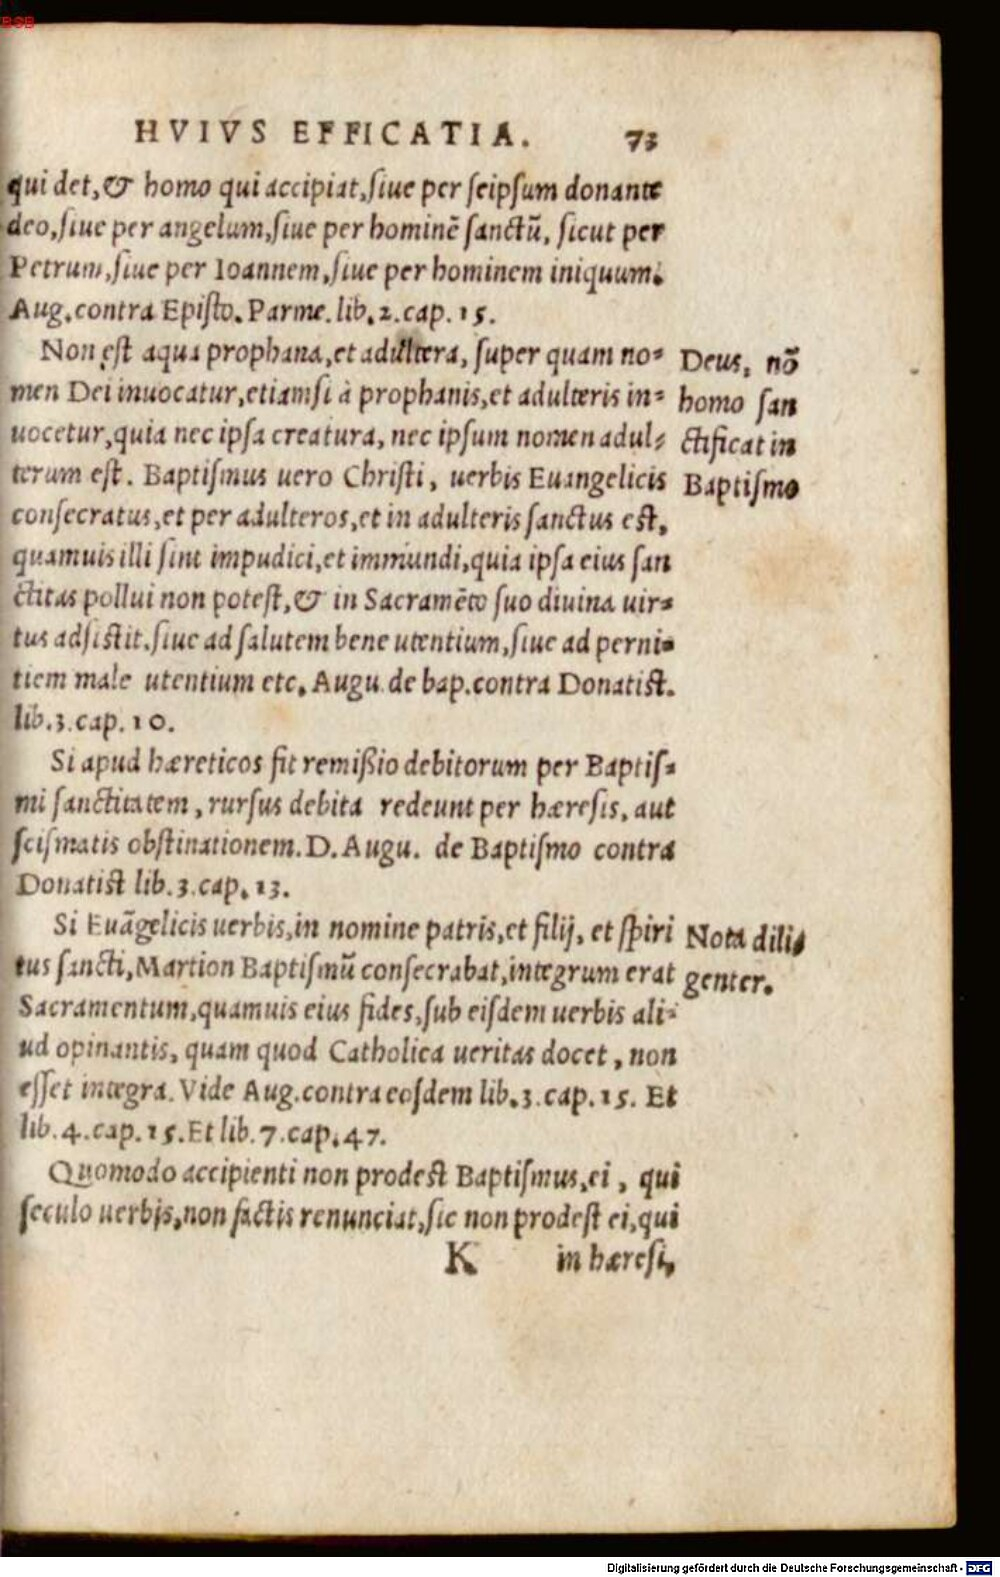 BSB
HVIVS EFFICATIA. 73
qui det, & homo qui accipiat, ſiue per ſeipſum donante
deo, ſiue per angelum, ſiue per hominē ſanctū, ſicut per
Petrum, ſiue per Ioannem, ſiue per hominem iniquum.
Aug. contra Epiſto. Parme. lib. 2. cap. 15.
Non ęst aqua prophana, et adultera, ſuper quam no=
men Dei inuocatur, etiamſi à prophanis, et adulteris in=
uocetur, quia nec ipſa creatura, nec ipſum nomen adul=
terum eſt. Baptiſmus uero Chriſti, uerbis Euangelicis
conſecratus, et per adulteros, et in adulteris ſanctus eſt,
quamuis illi ſint impudici, et immundi, quia ipſa eius ſan
ctitas pollui non poteſt, & in Sacramēto ſuo diuina uir=
tus adſiſtit, ſiue ad ſalutem bene utentium, ſiue ad perni=
tiem male utentium etc. Augu. de bap. contra Donatiſt.
lib. 3. cap. 10.
Deus, nō
homo ſan
ctificat in
Baptiſmo
Si apud hæreticos fit remißio debitorum per Baptiſ=
mi ſanctitatem, rurſus debita redeunt per hæreſis, aut
ſciſmatis obſtinationem. D. Augu. de Baptiſmo contra
Donatiſt lib. 3. cap. 13.
Si Euāgelicis uerbis, in nomine patris, et filij, et ſpiri
tus ſancti, Martion Baptiſmū conſecrabat, integrum erat
Sacramentum, quamuis eius fides, ſub eiſdem uerbis ali=
ud opinantis, quam quod Catholica ueritas docet, non
eſſet integra. Vide Aug. contra eoſdem lib. 3. cap. 15. Et
lib. 4. cap. 15. Et lib. 7. cap. 47.
Nota dili=
genter.
Quomodo accipienti non prodeſt Baptiſmus, ei, qui
ſeculo uerbis, non factis renunciat, ſic non prodeſt ei, qui
K in hæreſi,
Digitalisierung gefördert durch die Deutsche Forschungsgemeinschaft - DFG